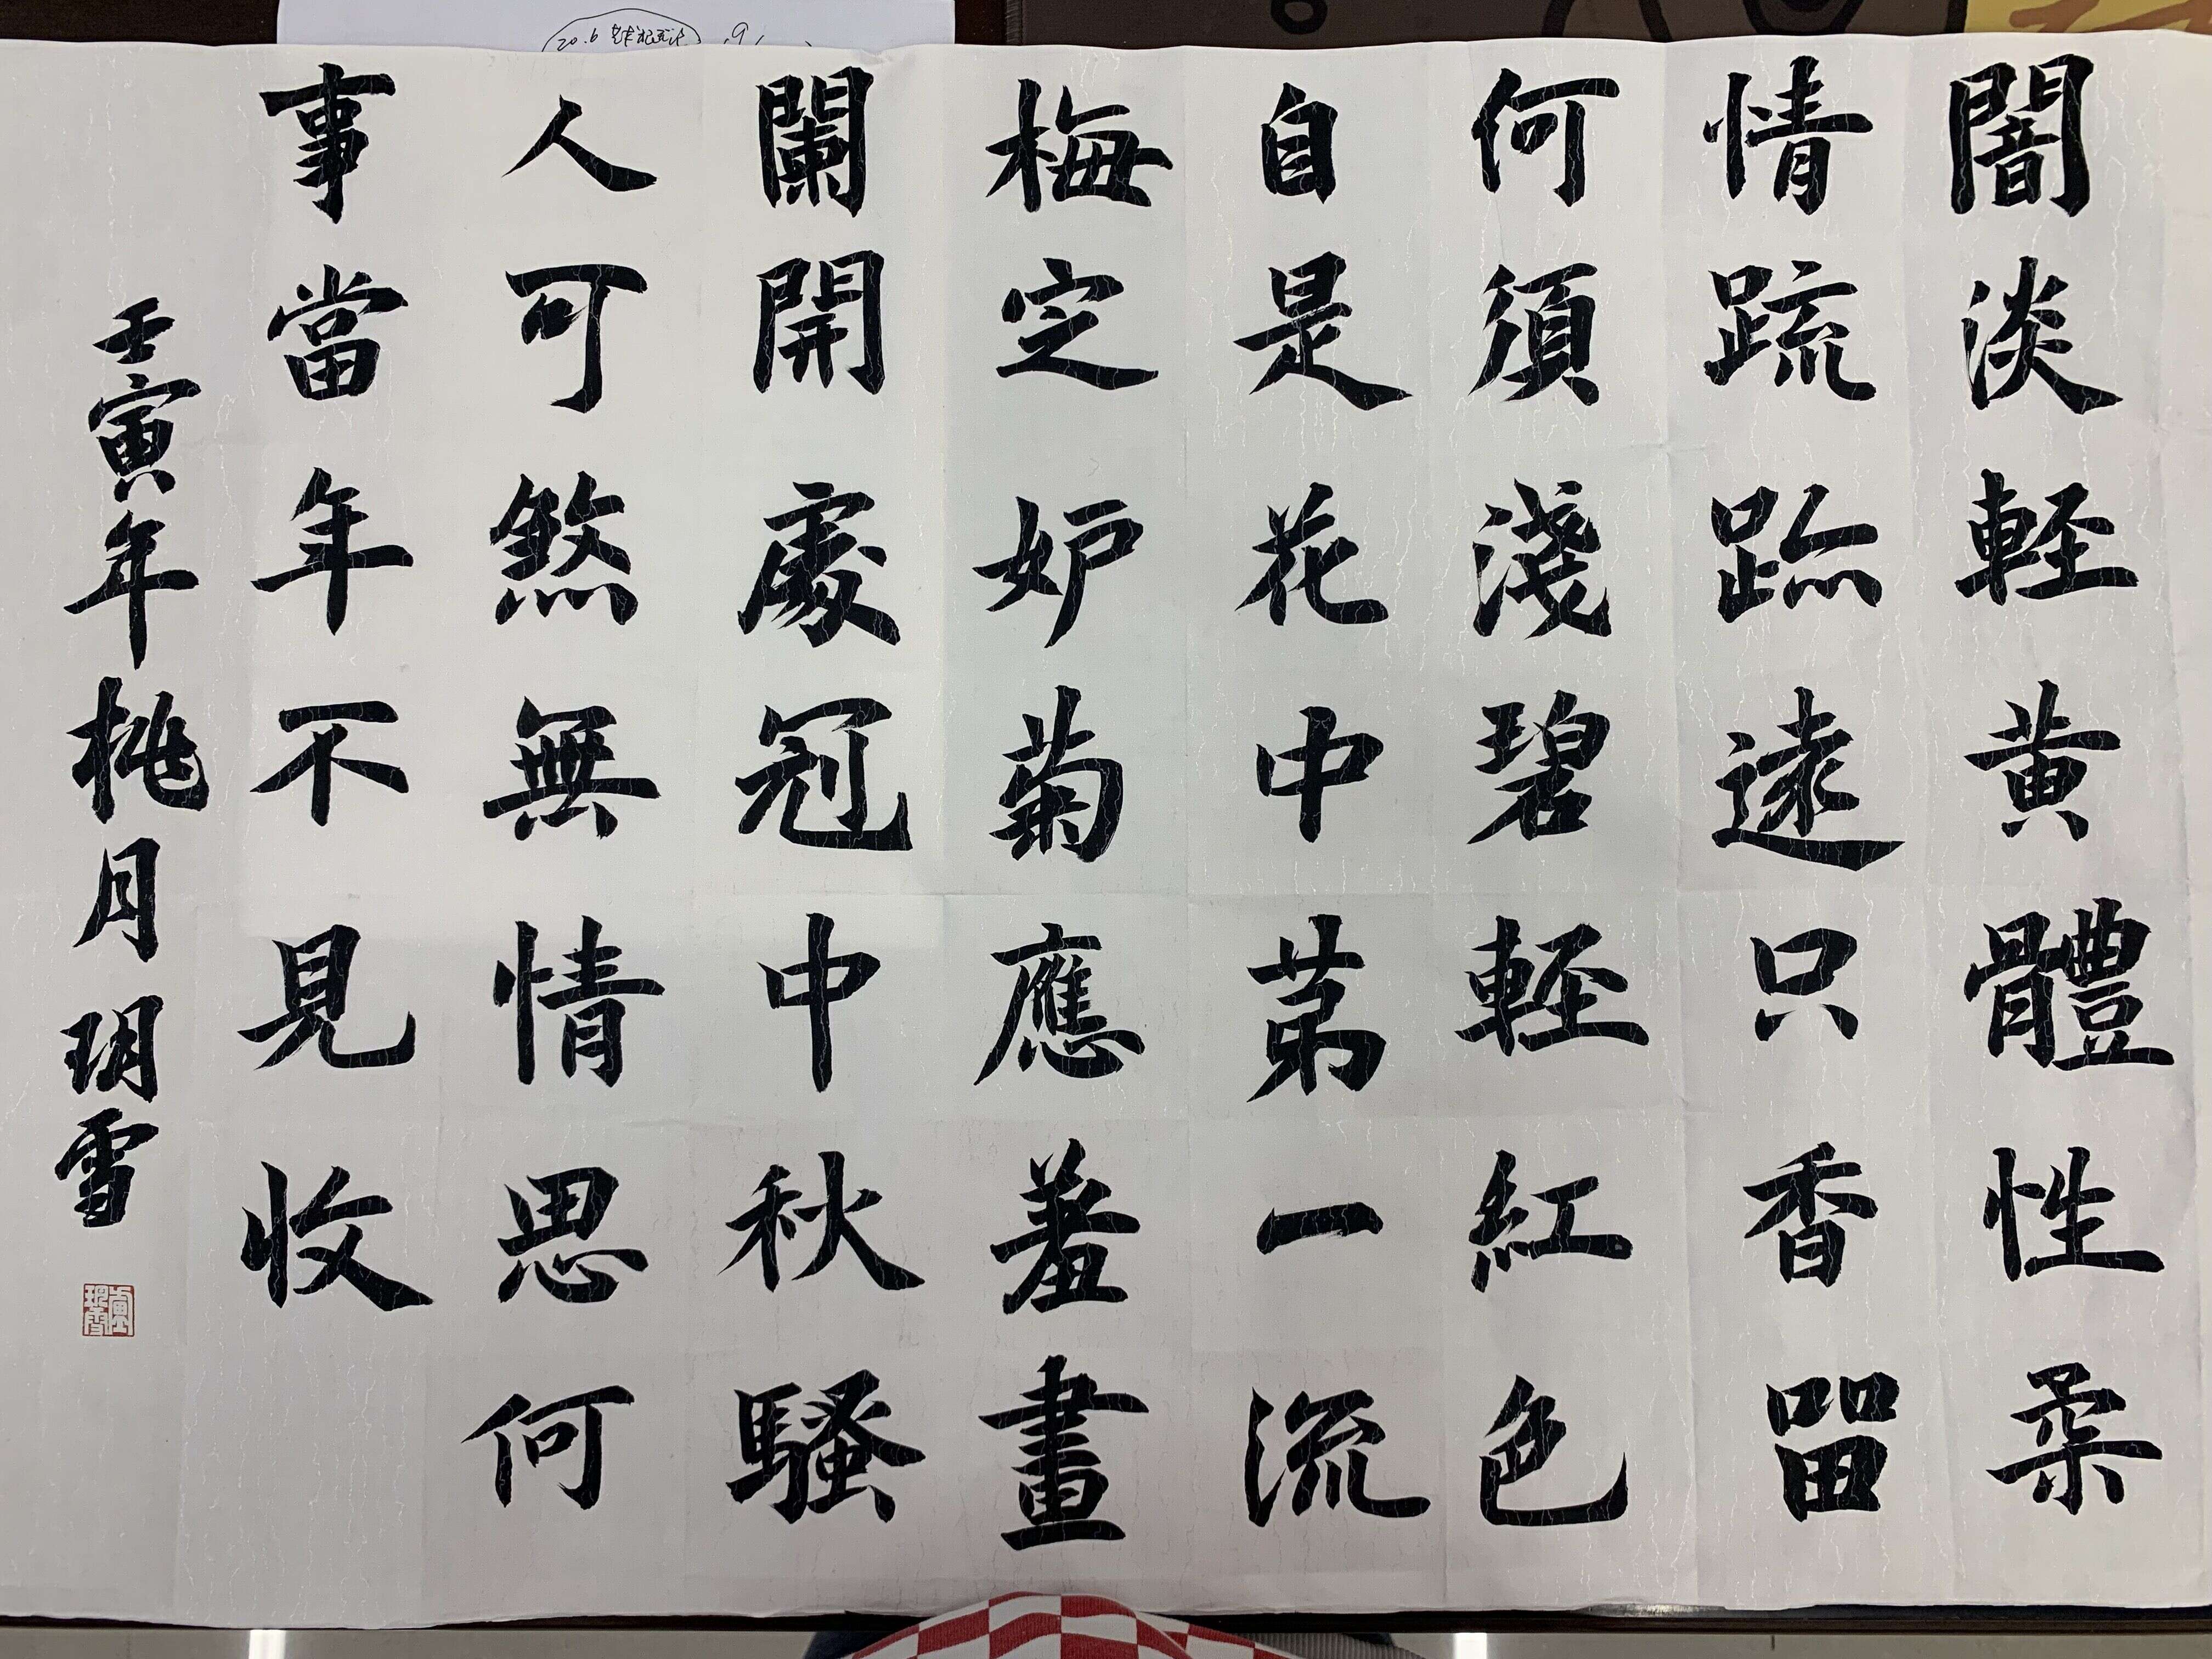 闇淡輕黄體性柔
情疏跡遠只香留
何須淺碧輕紅色
自是花中第一流
梅定妒菊應羞畫
闌開處冠中秋騷
人可煞無情思何
事當年不見收
壬寅年桃月玥雪